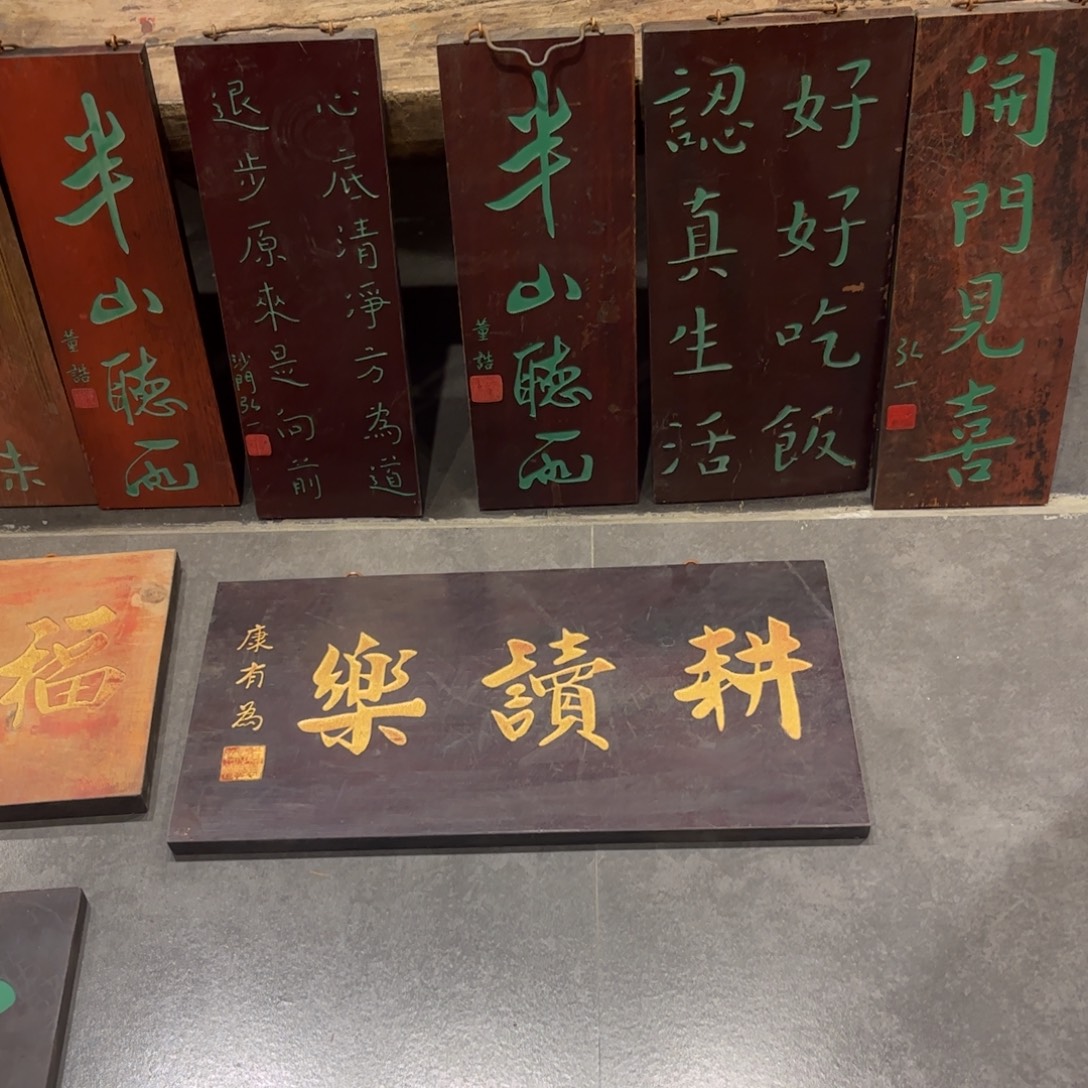 未
半山聽雨
董誥
心底清淨方為道
退步原來是向前
沙門弘一
半山聽雨
董誥
好好吃飯
認真生活
開門見喜
弘一
福
耕讀樂
康有為